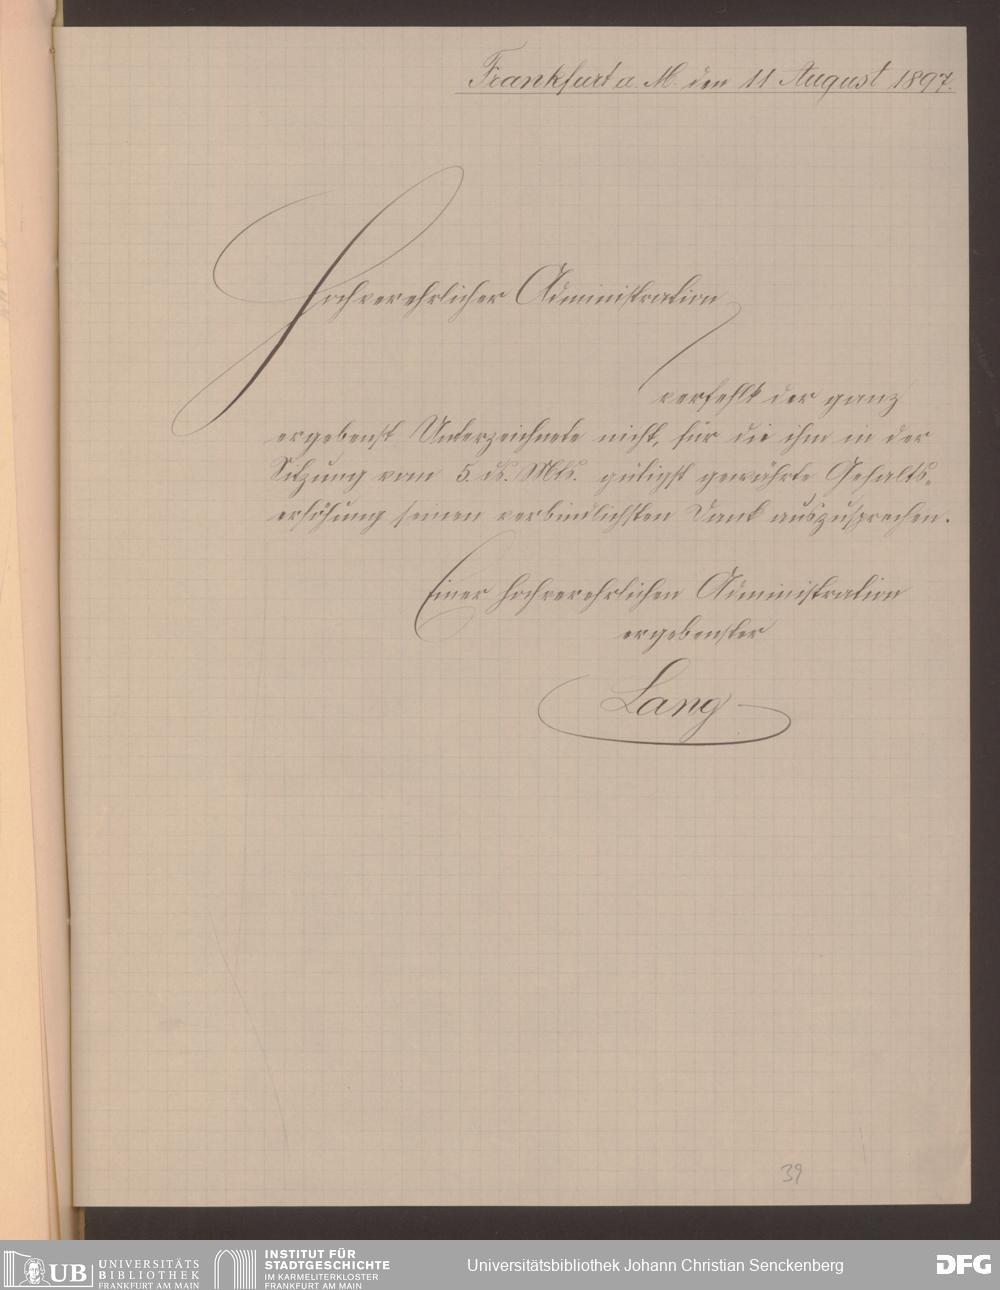 Frankfurt a. M. den 11 August 1897.
Hochverehrlicher Administration
verfehlt der ganz
ergebenst Unterzeichnete nicht, für die ihm in der
Sitzung vom 5. ds. Mts. gütigst gewährte Gehalts-
erhöhung seinen verbindlichsten Dank auszusprechen.
Einer hochverehrlichen Administration
ergebenster
Lang
39
UB UNIVERSITÄTS
BIBLIOTHEK
FRANKFURT AM MAIN
INSTITUT FÜR
STADTGESCHICHTE
IM KARMELITERKLOSTER
FRANKFURT AM MAIN
Universitätsbibliothek Johann Christian Senckenberg
DFG